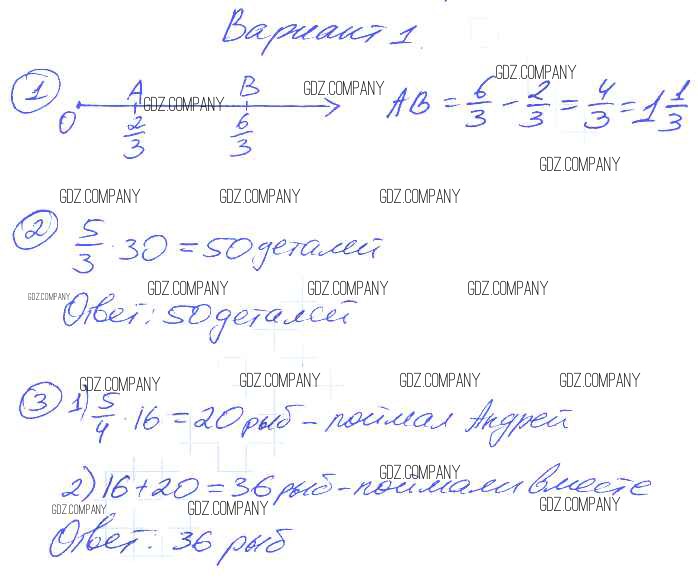 Вариант 1
① A B AB = 6/3 - 2/3 = 4/3 = 1 1/3
O 2/3 6/3
② 5/3 · 30 = 50 деталей
Ответ: 50 деталей
③ 1) 5/4 · 16 = 20 рыб - поймал Андрей
2) 16 + 20 = 36 рыб - поймали вместе
Ответ: 36 рыб
GDZ.COMPANY
GDZ.COMPANY
GDZ.COMPANY
GDZ.COMPANY
GDZ.COMPANY GDZ.COMPANY GDZ.COMPANY
GDZ.COMPANY GDZ.COMPANY GDZ.COMPANY GDZ.COMPANY
GDZ.COMPANY GDZ.COMPANY GDZ.COMPANY GDZ.COMPANY
GDZ.COMPANY
GDZ.COMPANY GDZ.COMPANY GDZ.COMPANY